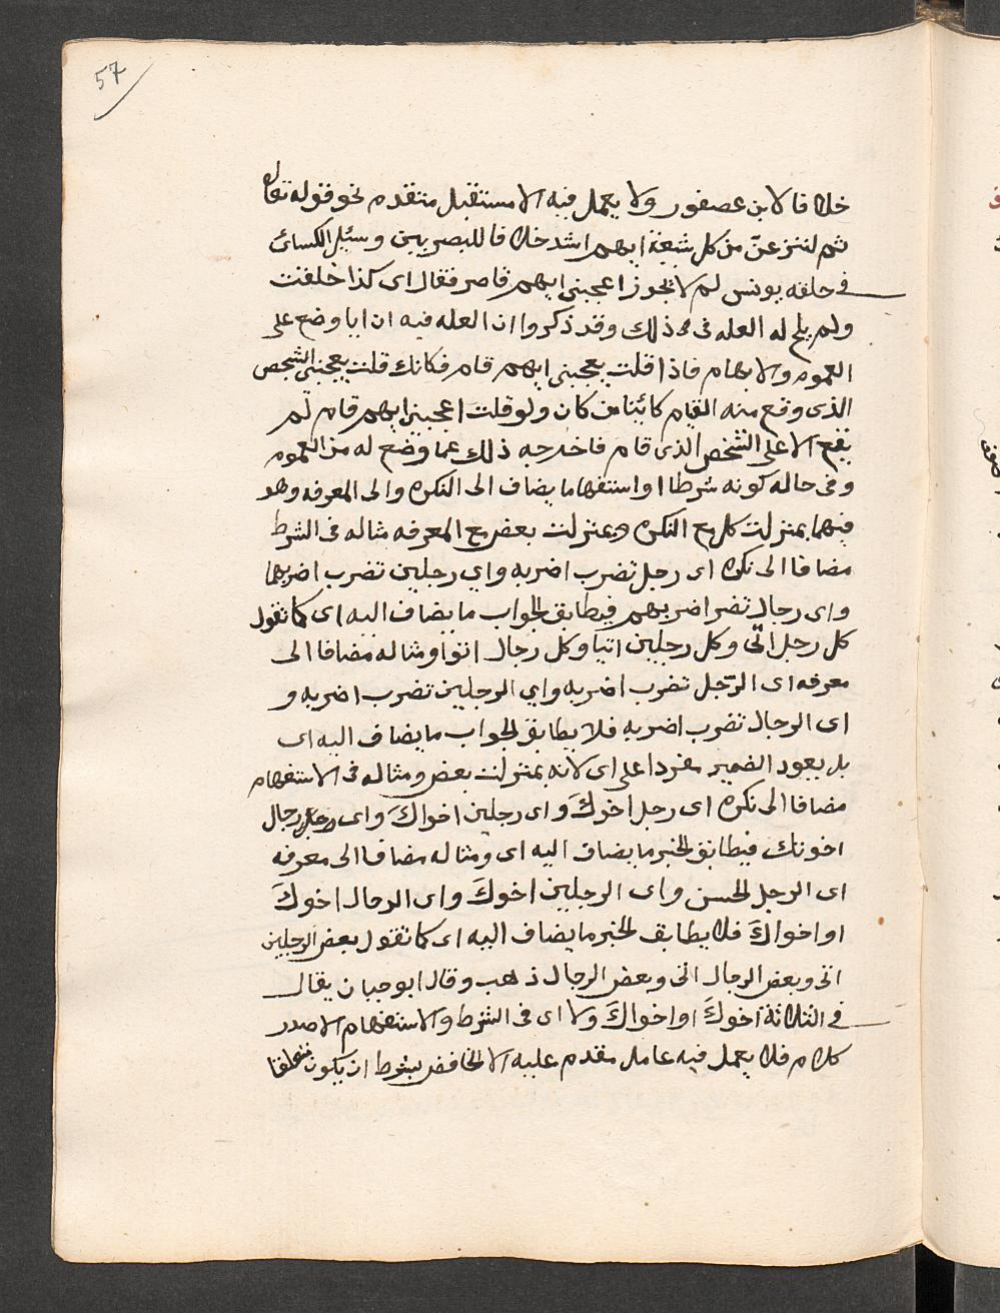 57
خلافا لابن عصفور ولا يعمل فيه الا مستقبل متقدم نحو قوله تعالى
ثم لننزعنّ من كل شيعة ايهم اشد خلافا للبصريين وسئل الكسائى
فى حلقه يونس لم لا يجوز اعجبنى ايهم قام فقال اى كذا خلقت
ولم يلح له العله فى ذلك وقد ذكروا ان العله فيه ان ايا وضع على
العموم والابهام فاذا قلت يعجبنى ايهم قام فكانك قلت يعجبنى الشخص
الذى وقع منه القيام كائنا من كان ولو قلت اعجبنى ايهم قام لم
يقع الا على الشخص الذى قام فاخرجه ذلك عما وضع له من العموم
وفى حاله كونه شرطا او استفهاما يضاف الى النكره والى المعرفه وهو
فيهما بمنزلت كل مع النكره وبمنزلت بعض مع المعرفه مثاله فى الشرط
مضافا الى نكره اى رجل تضرب اضربه واي رجلين تضرب اضربهما
واى رجال تضر اضربهم فيطابق الجواب ما يضاف اليه اى كما تقول
كل رجل اتى وكل رجلين اتيا وكل رجال اتوا ومثاله مضافا الى
معرفه اى الرّجل تضرب اضربه واي الرجلين تضرب اضربه و
اى الرجال تضرب اضربه فلا يطابق الجواب ما يضاف اليه اى
بل يعود الضمير مفردا على اى لانه بمنزلت بعض ومثاله فى الاستفهام
مضافا الى نكره اى رجل اخوكَ واى رجلين اخواكَ واى رجال
اخوتك فيطابق الخبر ما يضاف اليه اى ومثاله مضافا الى معرفه
اى الرجل الحسن واى الرجلين اخوكَ واى الرجال اخوكَ
او اخواكَ فلا يطابق الخبر ما يضاف اليه اى كما تقول بعض الرجلين
اتى وبعض الرجال اتى وبعض الرجال ذهب وقال ابو حيان يقال
فى الثلاثة اخوكَ او اخواكَ ولا اى فى الشرط والاستفهام الا صدر
كلام فلا يعمل فيه عامل مقدم عليه الا الخافض بشرط ان يكون متعلقا